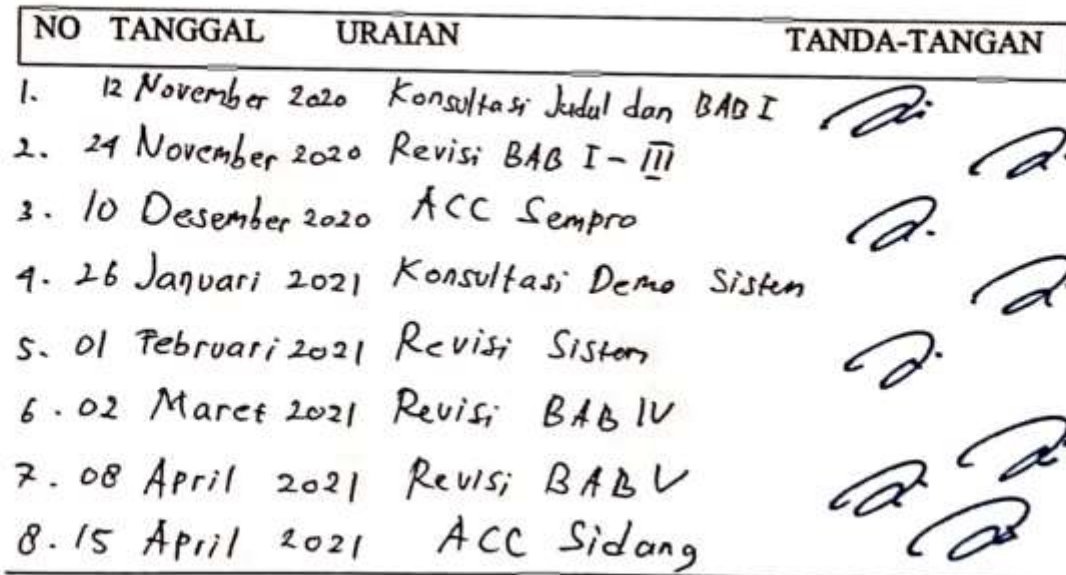 NO TANGGAL URAIAN TANDA-TANGAN
1. 12 November 2020 Konsultasi Judul dan BAB I
2. 24 November 2020 Revisi BAB I - III
3. 10 Desember 2020 ACC Sempro
4. 26 Januari 2021 Konsultasi Demo Sistem
5. 01 Februari 2021 Revisi Sistem
6. 02 Maret 2021 Revisi BAB IV
7. 08 April 2021 Revisi BAB V
8. 15 April 2021 ACC Sidang